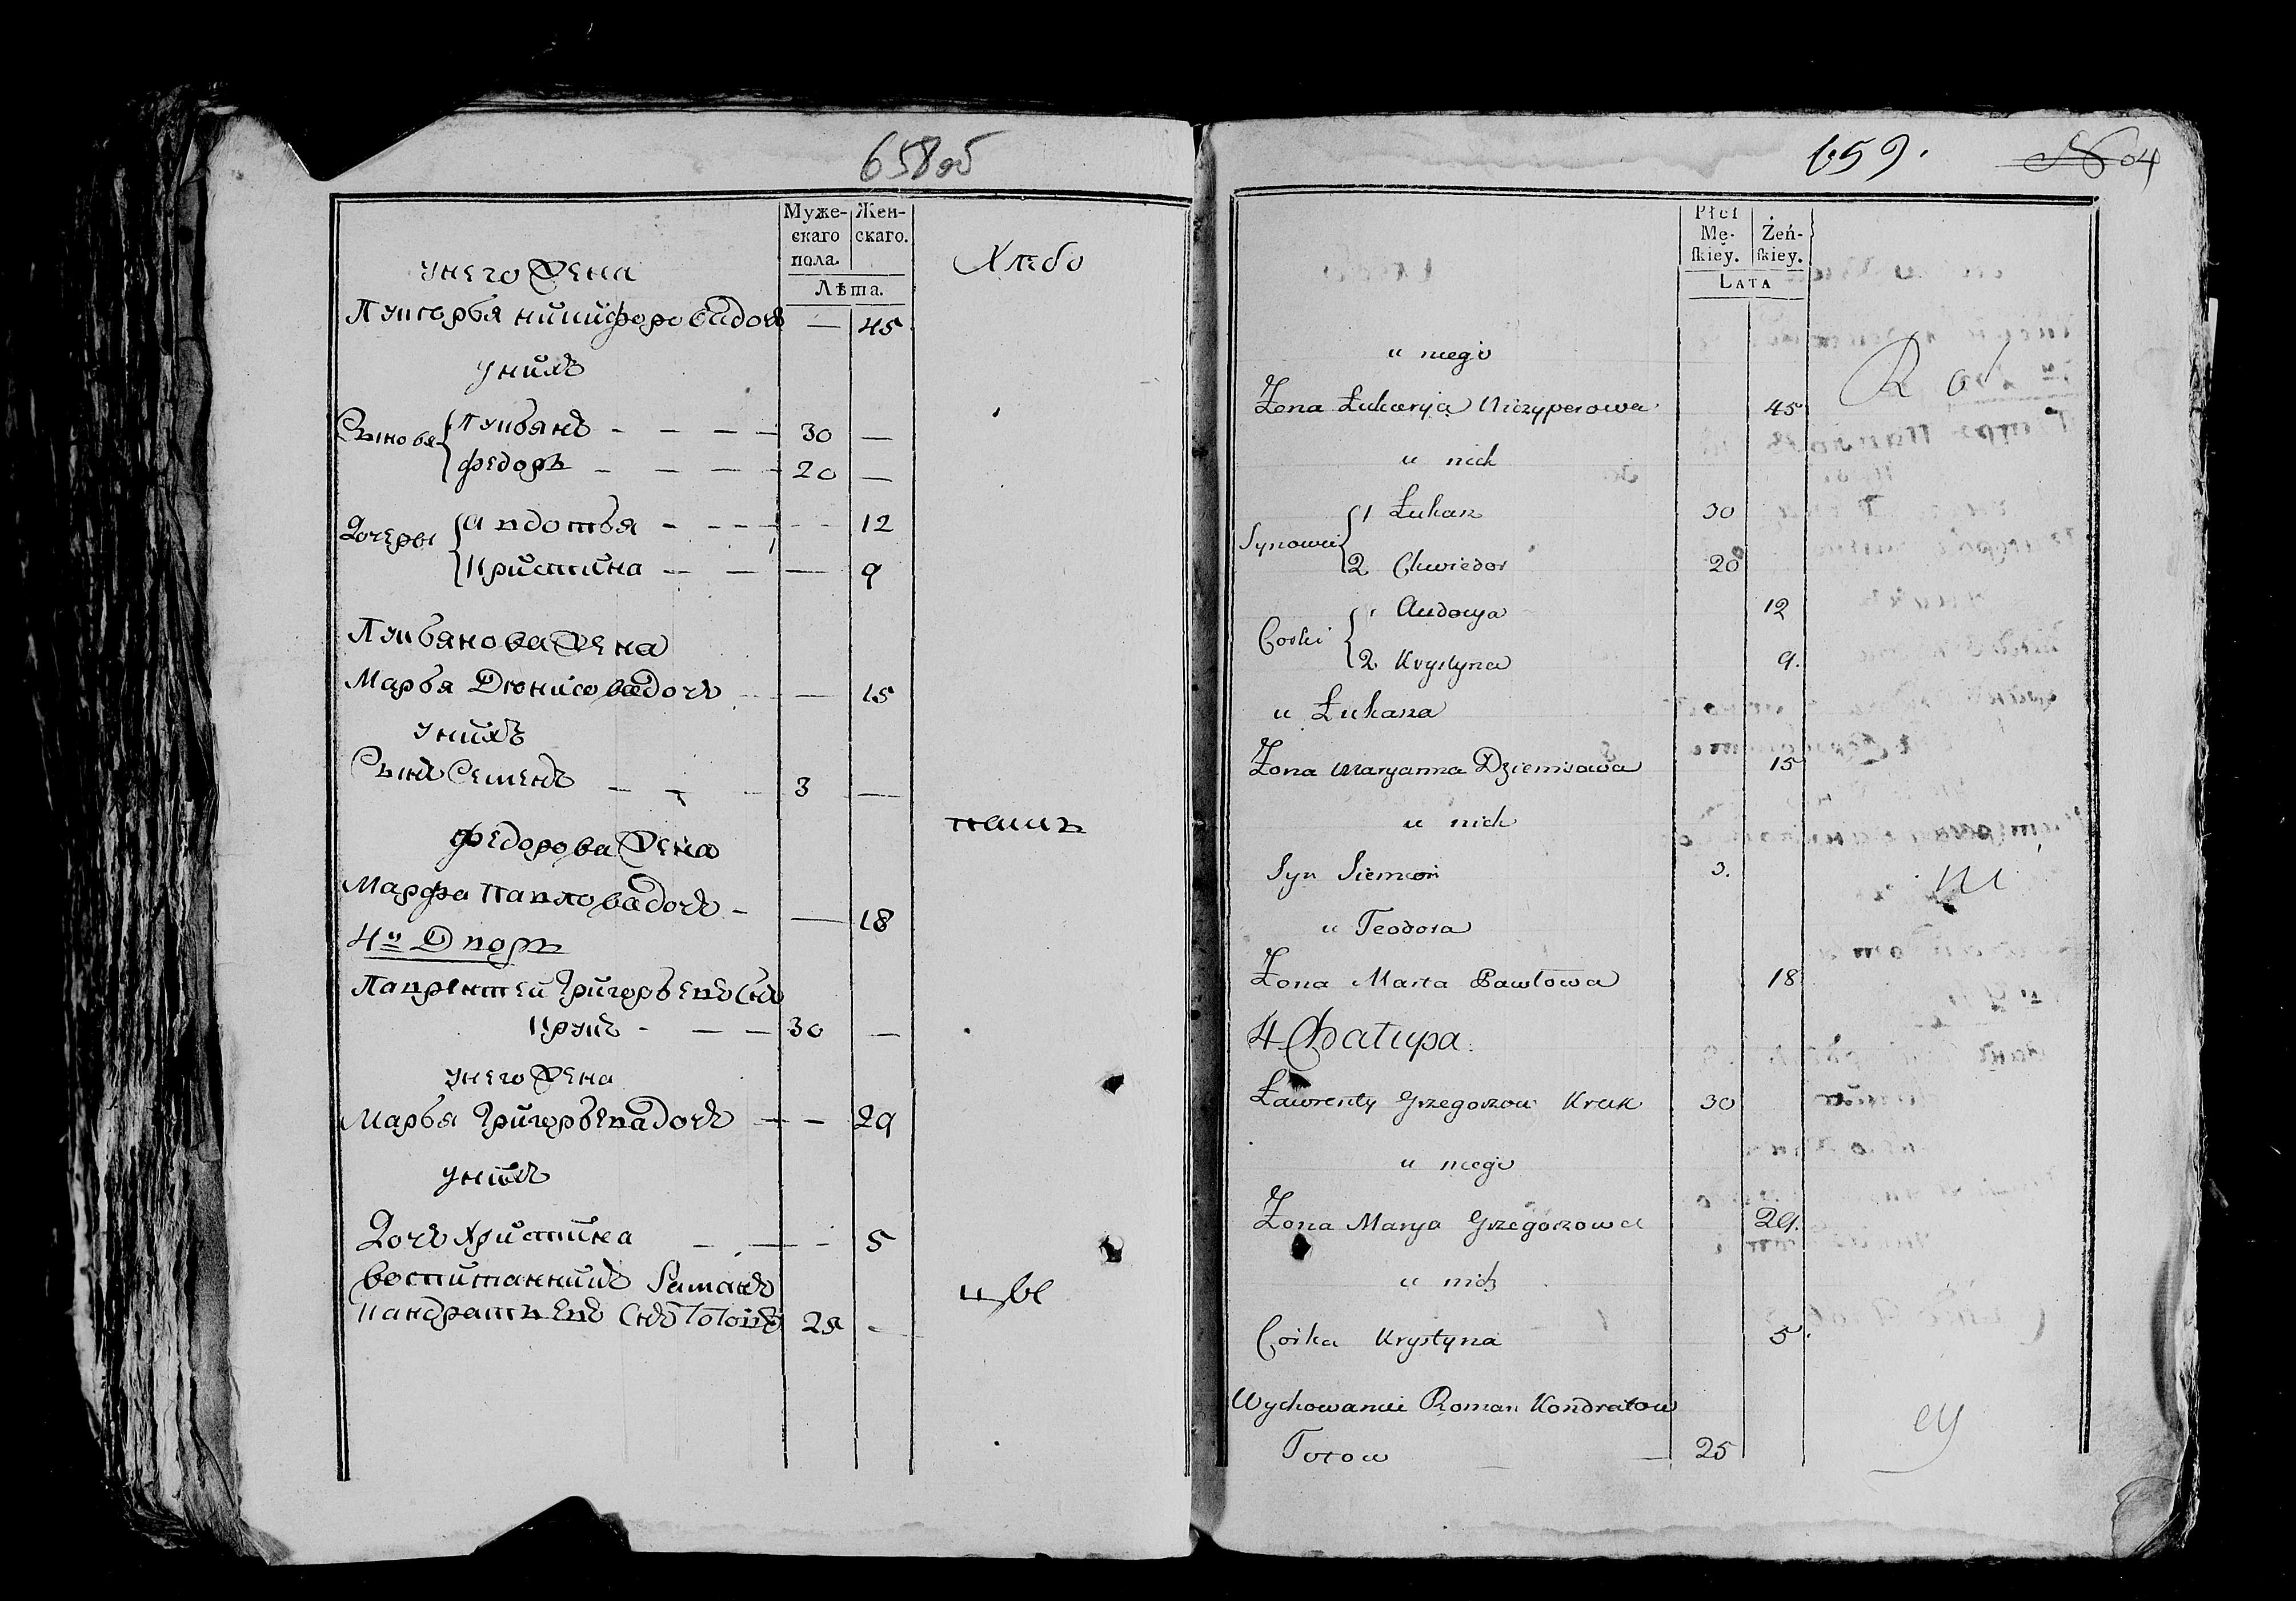 658об
Муже- Жен-
скаго скаго.
пола.
Лѣта.
Хлебо
У него Жена
Лукерья никифорова дочь — 45
У нихъ
Сыновья Лукьянъ - - - - 30 —
Федоръ - - - - 20 —
Дочери Авдотья - - - - 12
Кристина - - — 9
Лукьянова Жена
Марья Дюнисова дочь - — 15
У нихъ
Сынъ Семенъ - - - 3 —
пашъ
Федорова Жена
Марфа Павлова дочь - — 18
4й Дворъ
Лаврентей Григорьевъ Снъ
Крукъ - — — 30 —
У него Жена
Марья Григорьева дочь — — 29
У нихъ
Дочь Христина - — - 5
воспитанникъ Романъ
цы
Кандратьевъ Снъ 25 -
659. № 04
Płci
Mę- Żeń-
skiey. skiey.
LATA
u niego
Rol
Żona Łukerya Niczyperowa 45
u nich
Synowie 1 Łukasz 30
2 Chwiedor 20
Corki 1 Audocya 12
2 Krystyna 9.
u Łukasza
Żona Maryanna Dziemisowa 15
u nich
Syn Siemion 3.
ni
u Teodora
Żona Marta Pawłowa 18
4 Chatupa.
Ławrenty Grzegorzow Kruk 30
u niego
Żona Marya Grzegorzowa 29.
u nich
Corka Krystyna 5.
Wychowaniec Roman Kondratow
cy
25